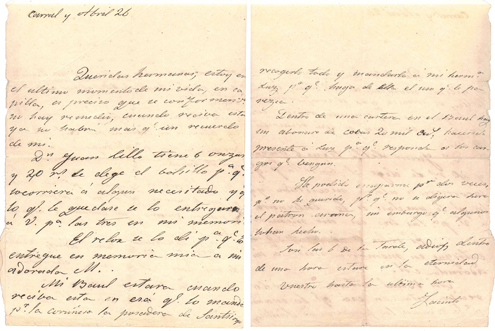 Carral y Abril 26
Queridas hermanas; estoy en
el ultimo momento de mi vida, en ca
pilla, es preciso que os conformeis
no hay remedio, cuando reciva esta
ya no habrá mas qe un recuerdo
de mi.
Dn Juan Lillo tiene 6 onzas
y 20 rs. le dege el bolsillo pa qe
socorriera á algun necesitado y
lo qe le quedase se lo entregara
a V. pa las tres en mi memoria
El relox se lo di pa qe lo
entregue en memoria mia a mi
adorada M.
Mi Baul estara cuando
reciba esta en esa qe lo mando
pr la coruñera la posadera de Santiago
recogerlo todo y mandarlo á mi herma
Luz, pa qe haga de el uso qe le pa
rezca.
Dentro de una cartera en el Baul hay
un abonare de
presente á Luz pa qe responda a los
qe vengan.
He pedido pr dos veces,
qe no se
el patron sin embargo qe algunos
habian hecho.
Son las 5 de la Tarde, adios, dentro
de una hora estare en la eternidad
Vuestro hasta la ultima hora
Jacinto